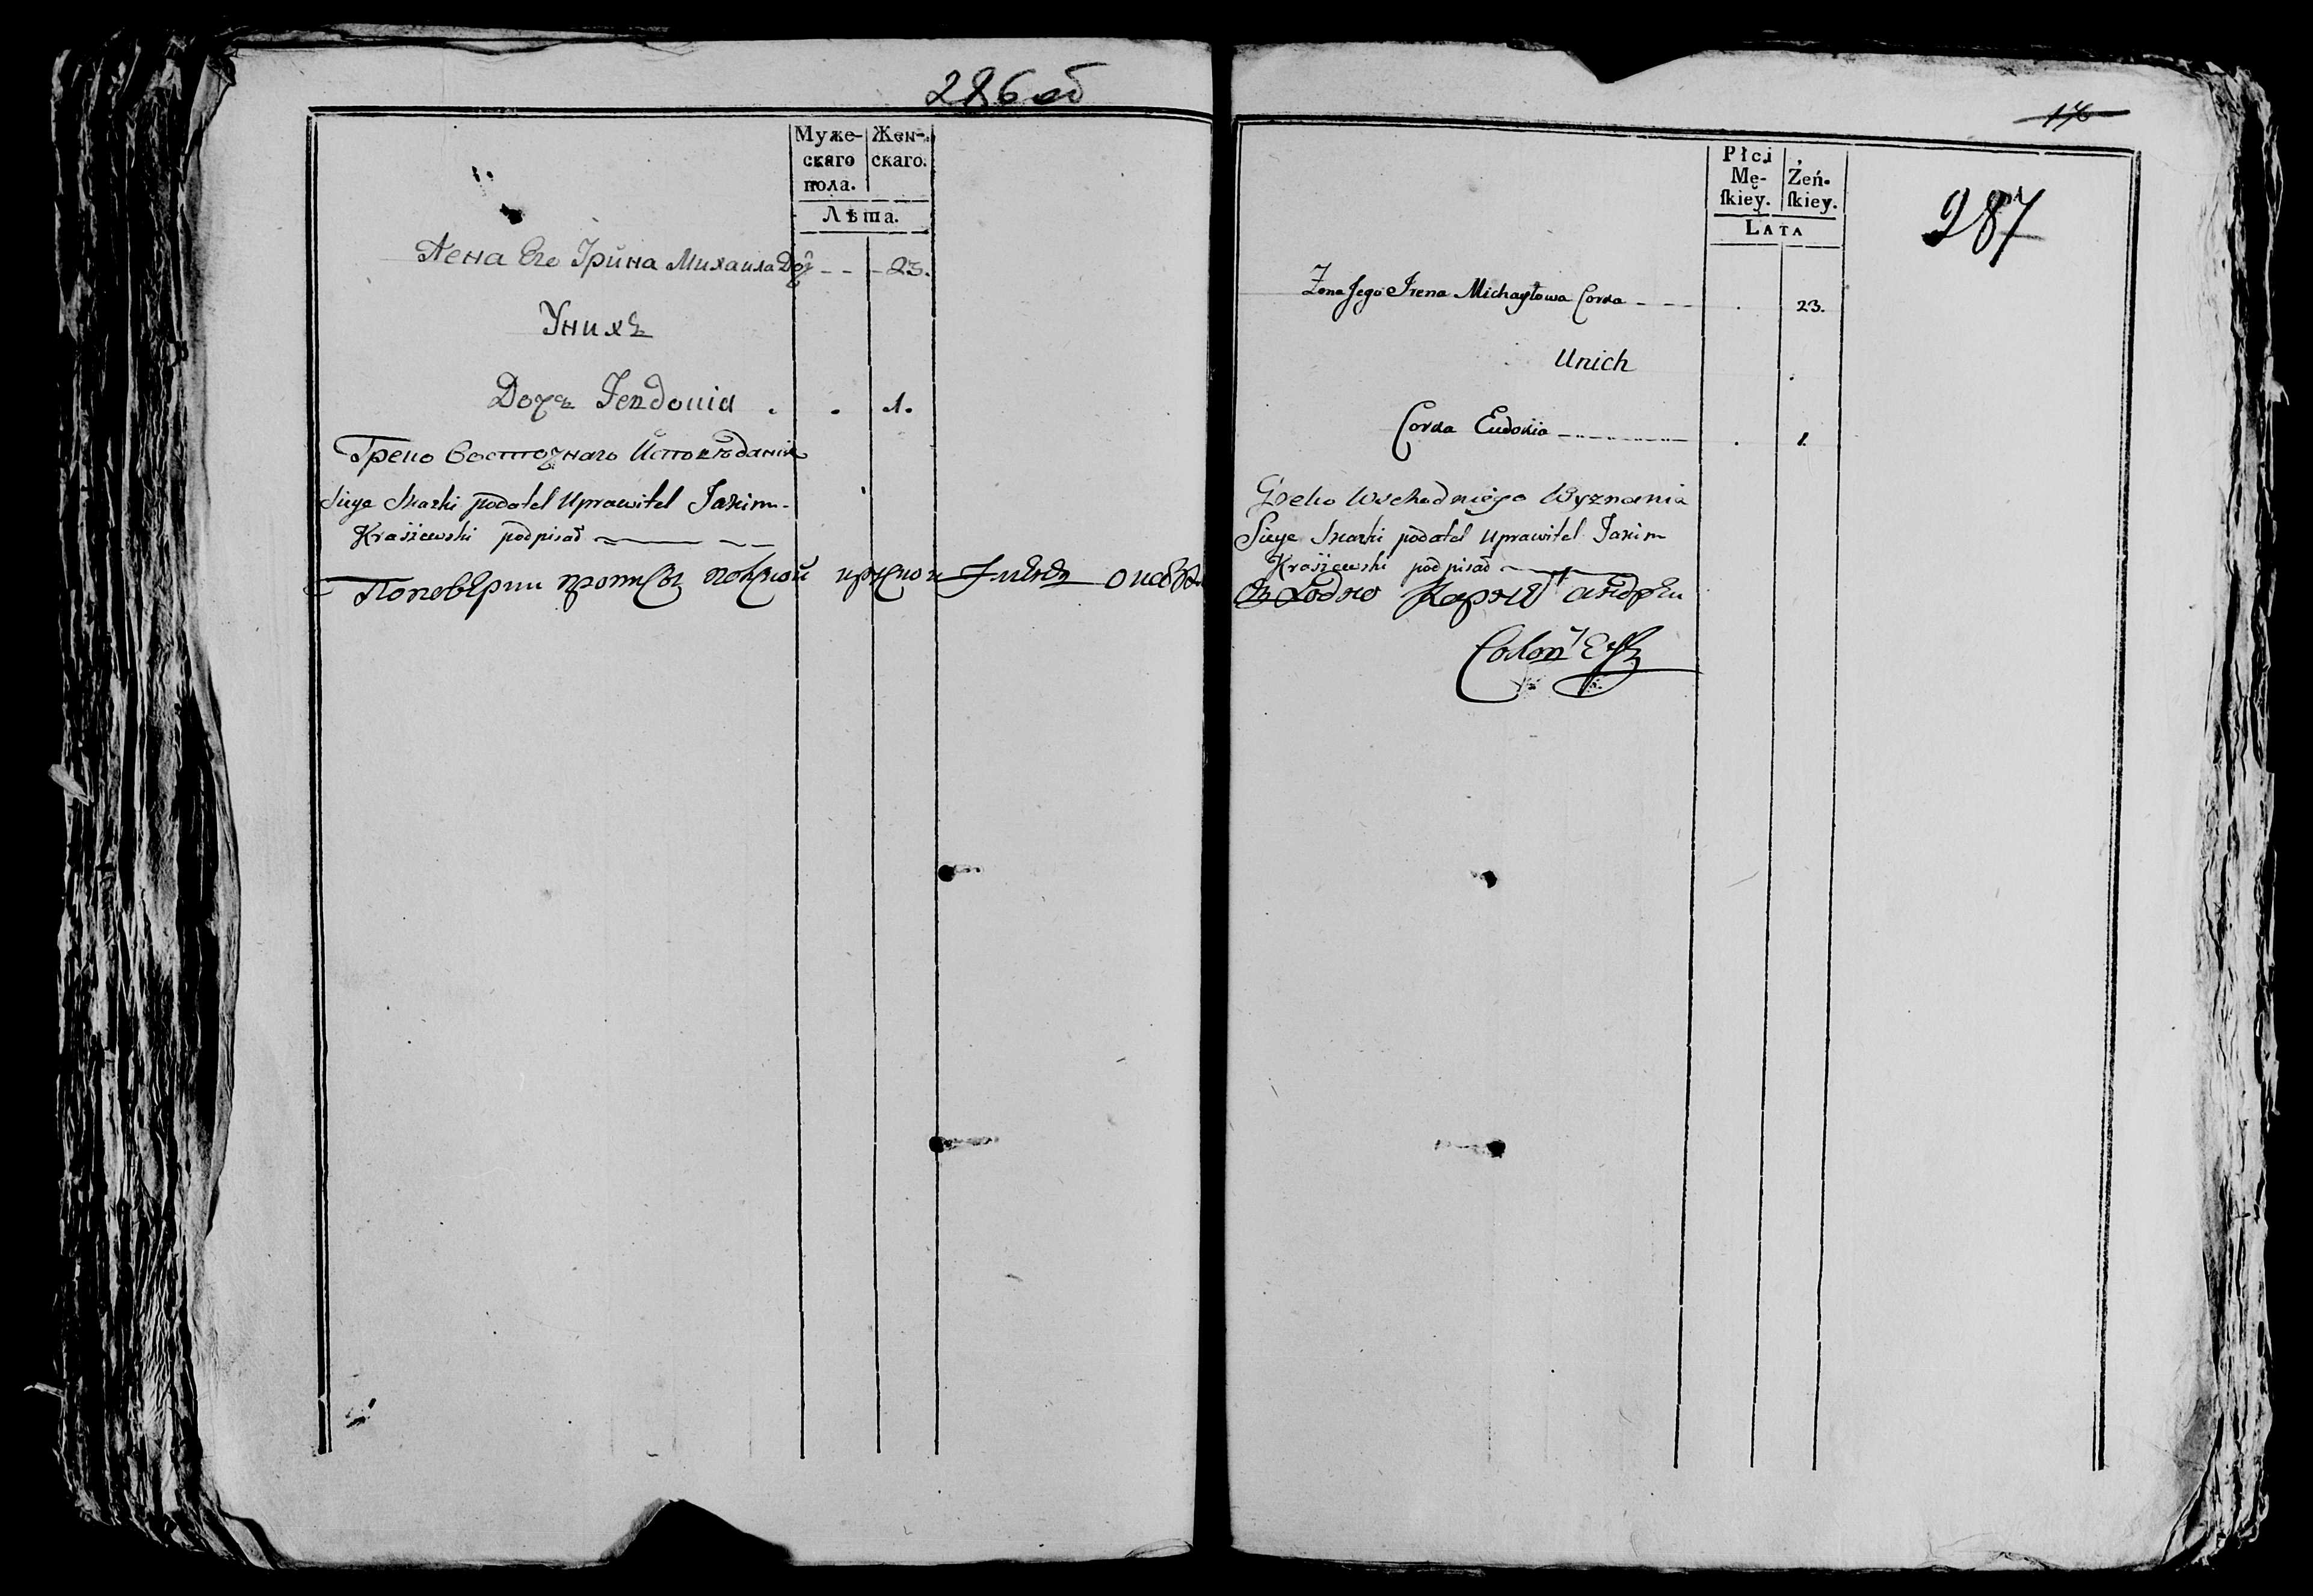 286 об
Муже-
скаго
пола.
Жен-
скаго.
Лѣта.
Жена Его Ірина Михаила Доч 23.
У нихъ
Дочь Іевдокиа . . 1.
Греко Восточнаго Исповѣданія
Siuye Skazki podatel Uprawitel Jakim
Kraszewski podpisał
По поверки
176
287
Płci
Mę-
ſkiey.
Żeń-
ſkiey.
LATA
Zona Jego Irena Michayłowa Corka . 23.
Unich
Corka Eudokia . 1.
Greko Wschodniego Wyznania
Siuye Skazki podatel Uprawitel Jakim
Kraszewski podpisał